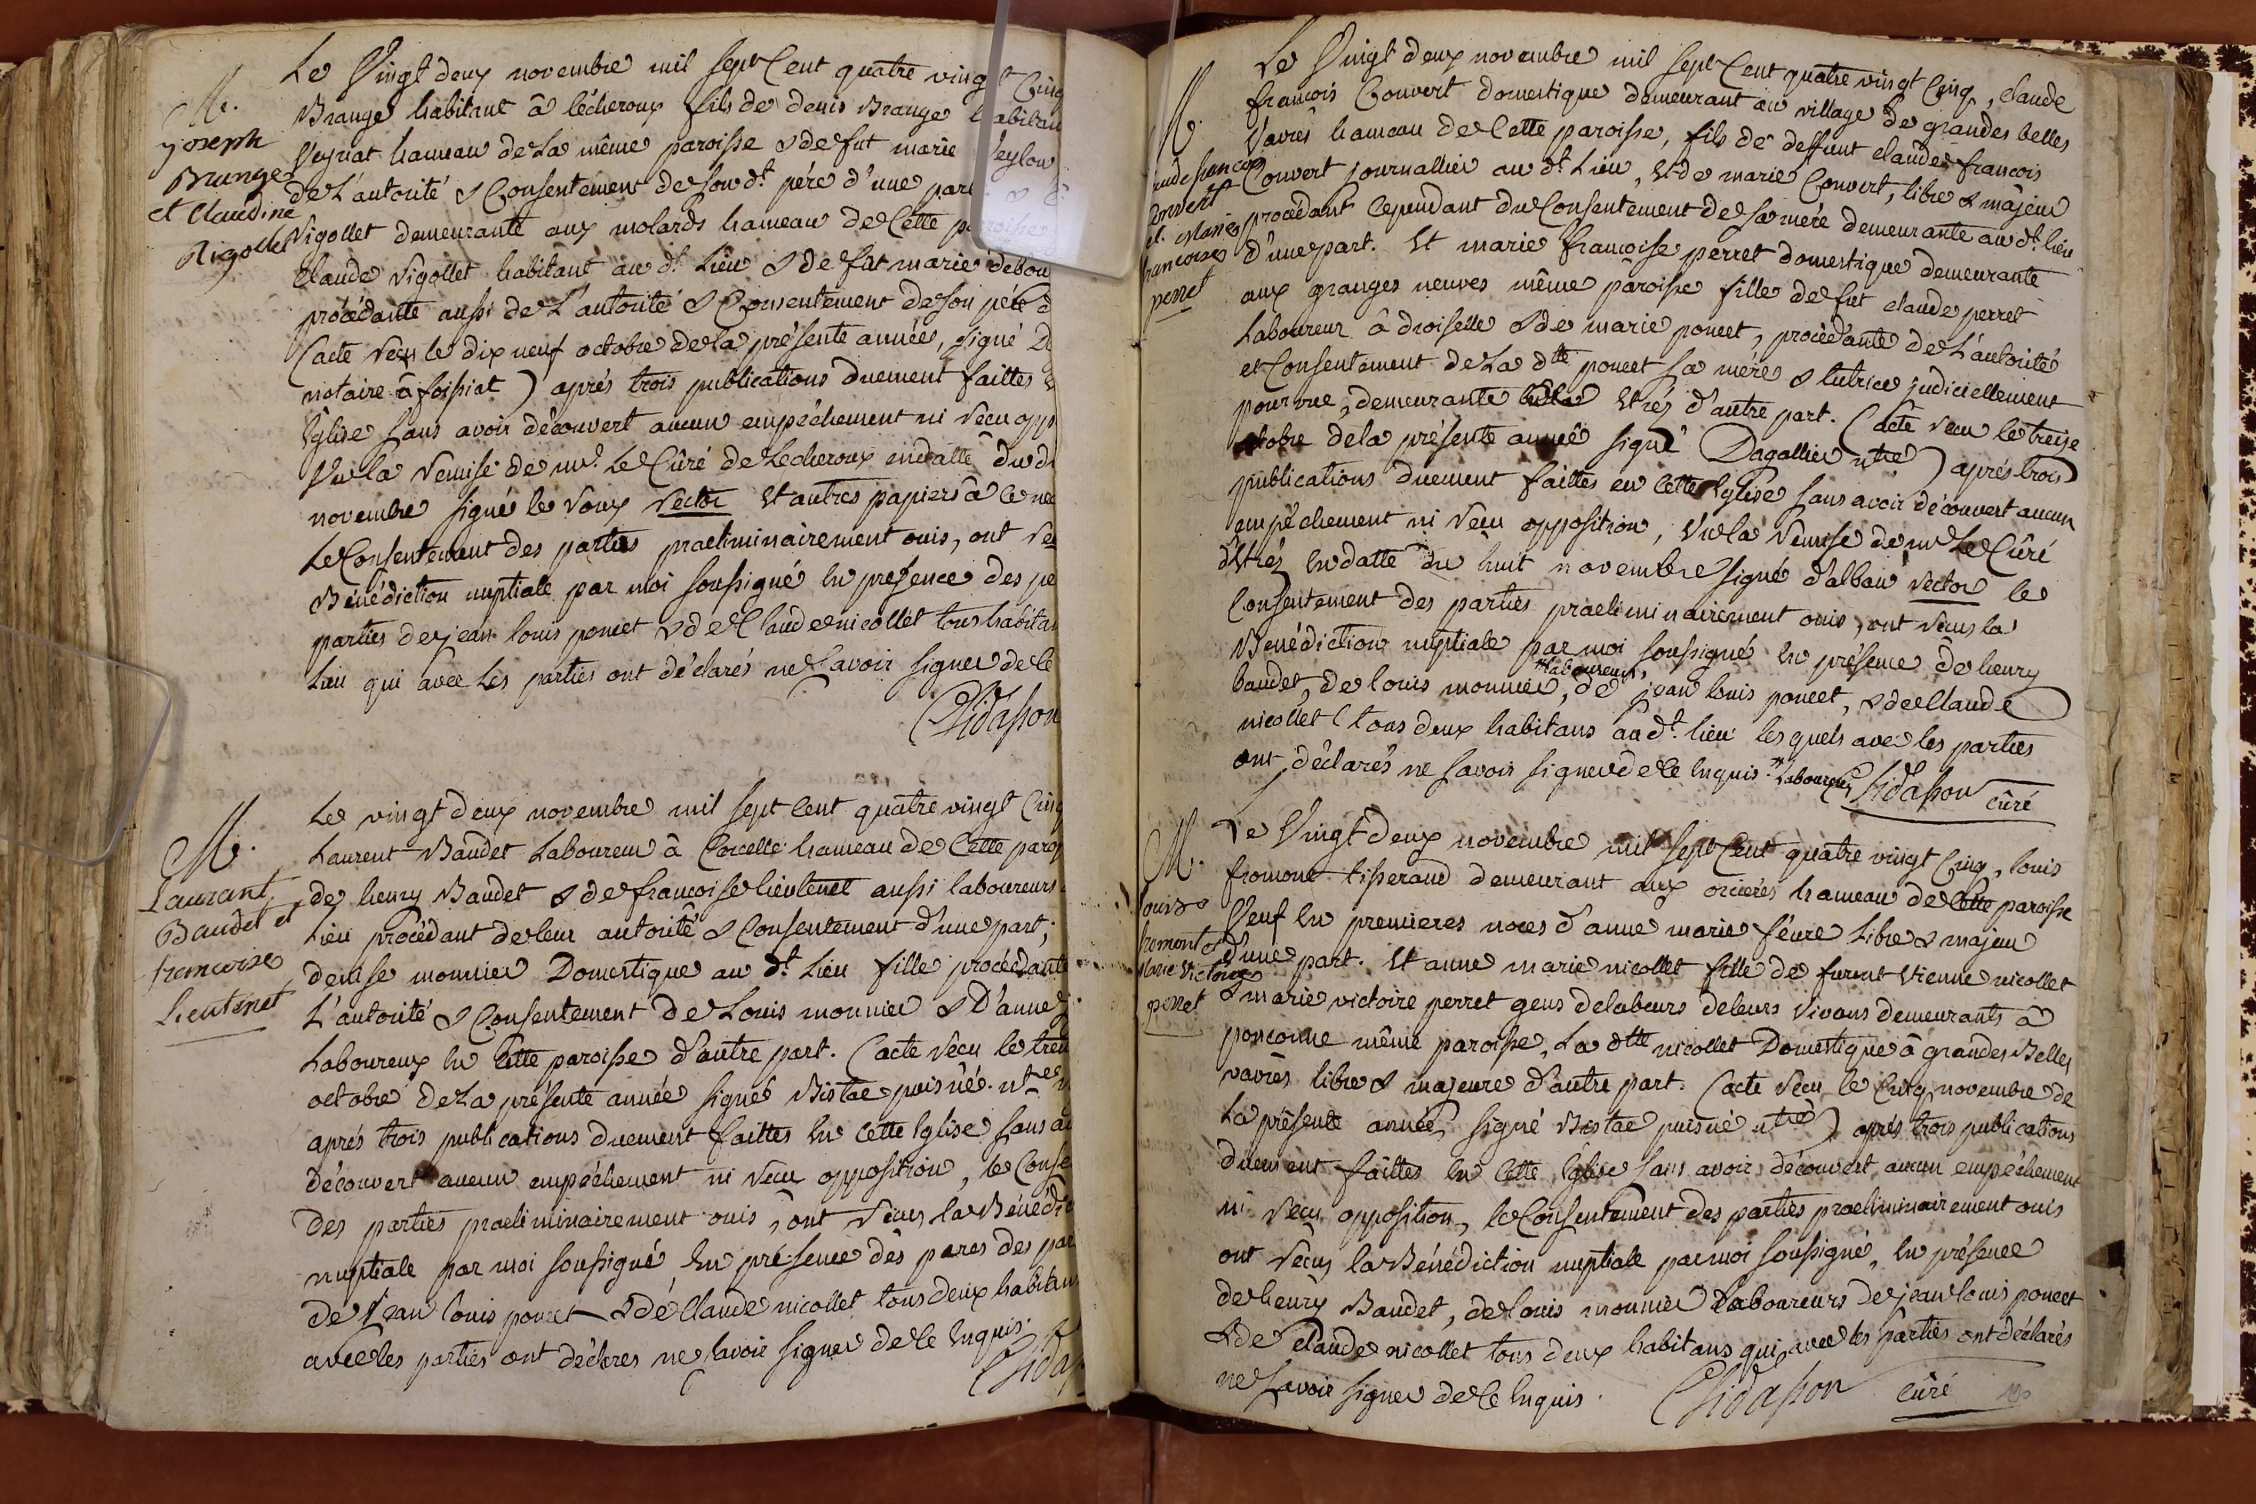 M.
joseph
Brunge
et Claudine
Rigollet
Le Vingt deux novembre mil sept Cent quatre vingt Cinq
Brange habitant â lécheroux fils de denis Brange habitan
Veyriat hameau de La même paroisse & de fut marie
de L'autorité & Consentement de son dt. pére d'une par
Rigollet demeurante aux molards hameau de Cette
Claude Rigollet habitant au dt. Lieu & de fut marie debou
procédante aussi de L'autorité & Consentement de son pére d
(acte reçu le dix neuf octobre de la présente années, signé
notaire â foissiat) aprés trois publications duement faittes
Eglise sans avoir découvert aucun empéchement ni reçu opp
Vu la remise de mr. Le Cûré de Lecheroux en datte du d
novembre signé le roux rector Et autres papiers â ce nec
Le Consentement des parties praeliminairement ouis, ont re
Bénédiction nuptiale par moi soussigné En presence des pe
parties de jean louis poncet & de Claude nicollet tous habitan
Lieu qui avec Les parties ont déclarés ne Savoir signer de Ce
Chidasson
M.
Laurant
Baudet et
francoise
Lieutenet
Le vingt deux novembre mil sept Cent quatre vingt Cinq
Laurent Baudet Laboureur â Corcelle hameau de Cette paroi
de henry Baudet & de francoise lieutenet aussi laboureurs
Lieu procédant de leur autorité & Consentement d'une part;
denise monnier Domestique au dt. Lieu fille procédante
L'autorité & Consentement de Louis monnier & D'anne
Laboureux En Cette paroisse d'autre part. (acte reçu le trei
octobre de La présente année signé Bistac puisné. ntre
aprés trois publications duement faittes En Cette Eglise sans a
découvert aucun empéchement ni reçu opposition, le Conse
des parties praeliminairement ouis, ont reçus la Bénédic
nuptiale par moi soussigné En présence des peres des par
de jean louis poncet & de Claude nicollet tous deux habitans
avec les parties ont déclarés ne savoir signer de Ce Enquis.
Chidas
M.
aude francois
Convert
et. Marie
francoise
perret
Le Vingt deux novembre mil sept Cent quatre vingt Cinq, claude
francois Convert domestique demeurant au village de grandes belles
Vavres hameau de Cette paroisse, fils de deffunt claude francois
Convert journallier au dt. Lieu, Et de marie Convert, libre & mâjeur
procédant Cependant du Consentement de sa mére demeurante au dt. lieu
d'une part. Et marie francoise perret domestique demeurante
aux granges neuves même pâroisse fille de fut claude perret
Laboureur â droiselle & de marie poncet, procédante de L'autorité
et Consentement de La dtte poncet sa mére & tutrice judiciellement
pourvue, demeurante Etréz d'autre part. (acte reçu le treize
octobre de la présente année signé Dagallier ntre) aprés trois
publications duement faittes en Cette Eglise sans avoir découvert aucun
empéchement ni reçu opposition, Vu la remise de mr Le Cûré
d'Etréz En datte du huit novembre signé d'alban rector le
Consentement des parties praeliminairement ouis, ont reçus la
Bénédiction nuptiale par moi soussigné En présence de henry
baudet, de louis monnier, Laboureurs, de jean louis poncet, & de Claude
nicollet tous deux habitans au dt. lieu lesquels avec les parties
ont déclarés ne savoir signer de Ce Enquis. Laboureurs Chidasson cûré
M.
louis
fromont &
Marie Victoire
perret
Le Vingt deux novembre mil sept Cent quatre vingt Cinq, louis
fromont tisserand demeurant aux orcieres hameau de Cette paroisse
Veuf En premieres noces d'anne marie févre Libre & majeur
d'une part. Et anne marie nicollet fille de furent Etienne nicollet
& marie victoire perret gens de labeurs de leurs Vivans demeurants â
ponconne même paroisse, La dtte nicollet Domestique â grandes Belles
vavres libre & majeure d'autre part. (acte reçu le Cinq novembre de
La présente année, signé Bistac puisné ntre) aprés trois publications
duement faittes En Cette Eglise sans avoir découvert aucun empéchement
ni reçu opposition, le Consentement des parties praeliminairement ouis
ont reçus la Bénédiction nuptiale par moi soussigné, En présence
de henry Baudet, de louis monnier Laboureurs de jean louis poncet
& de Claude nicollet tous deux habitans qui avec les parties ont déclarés
ne savoir signer de Ce Enquis. Chidasson cûré